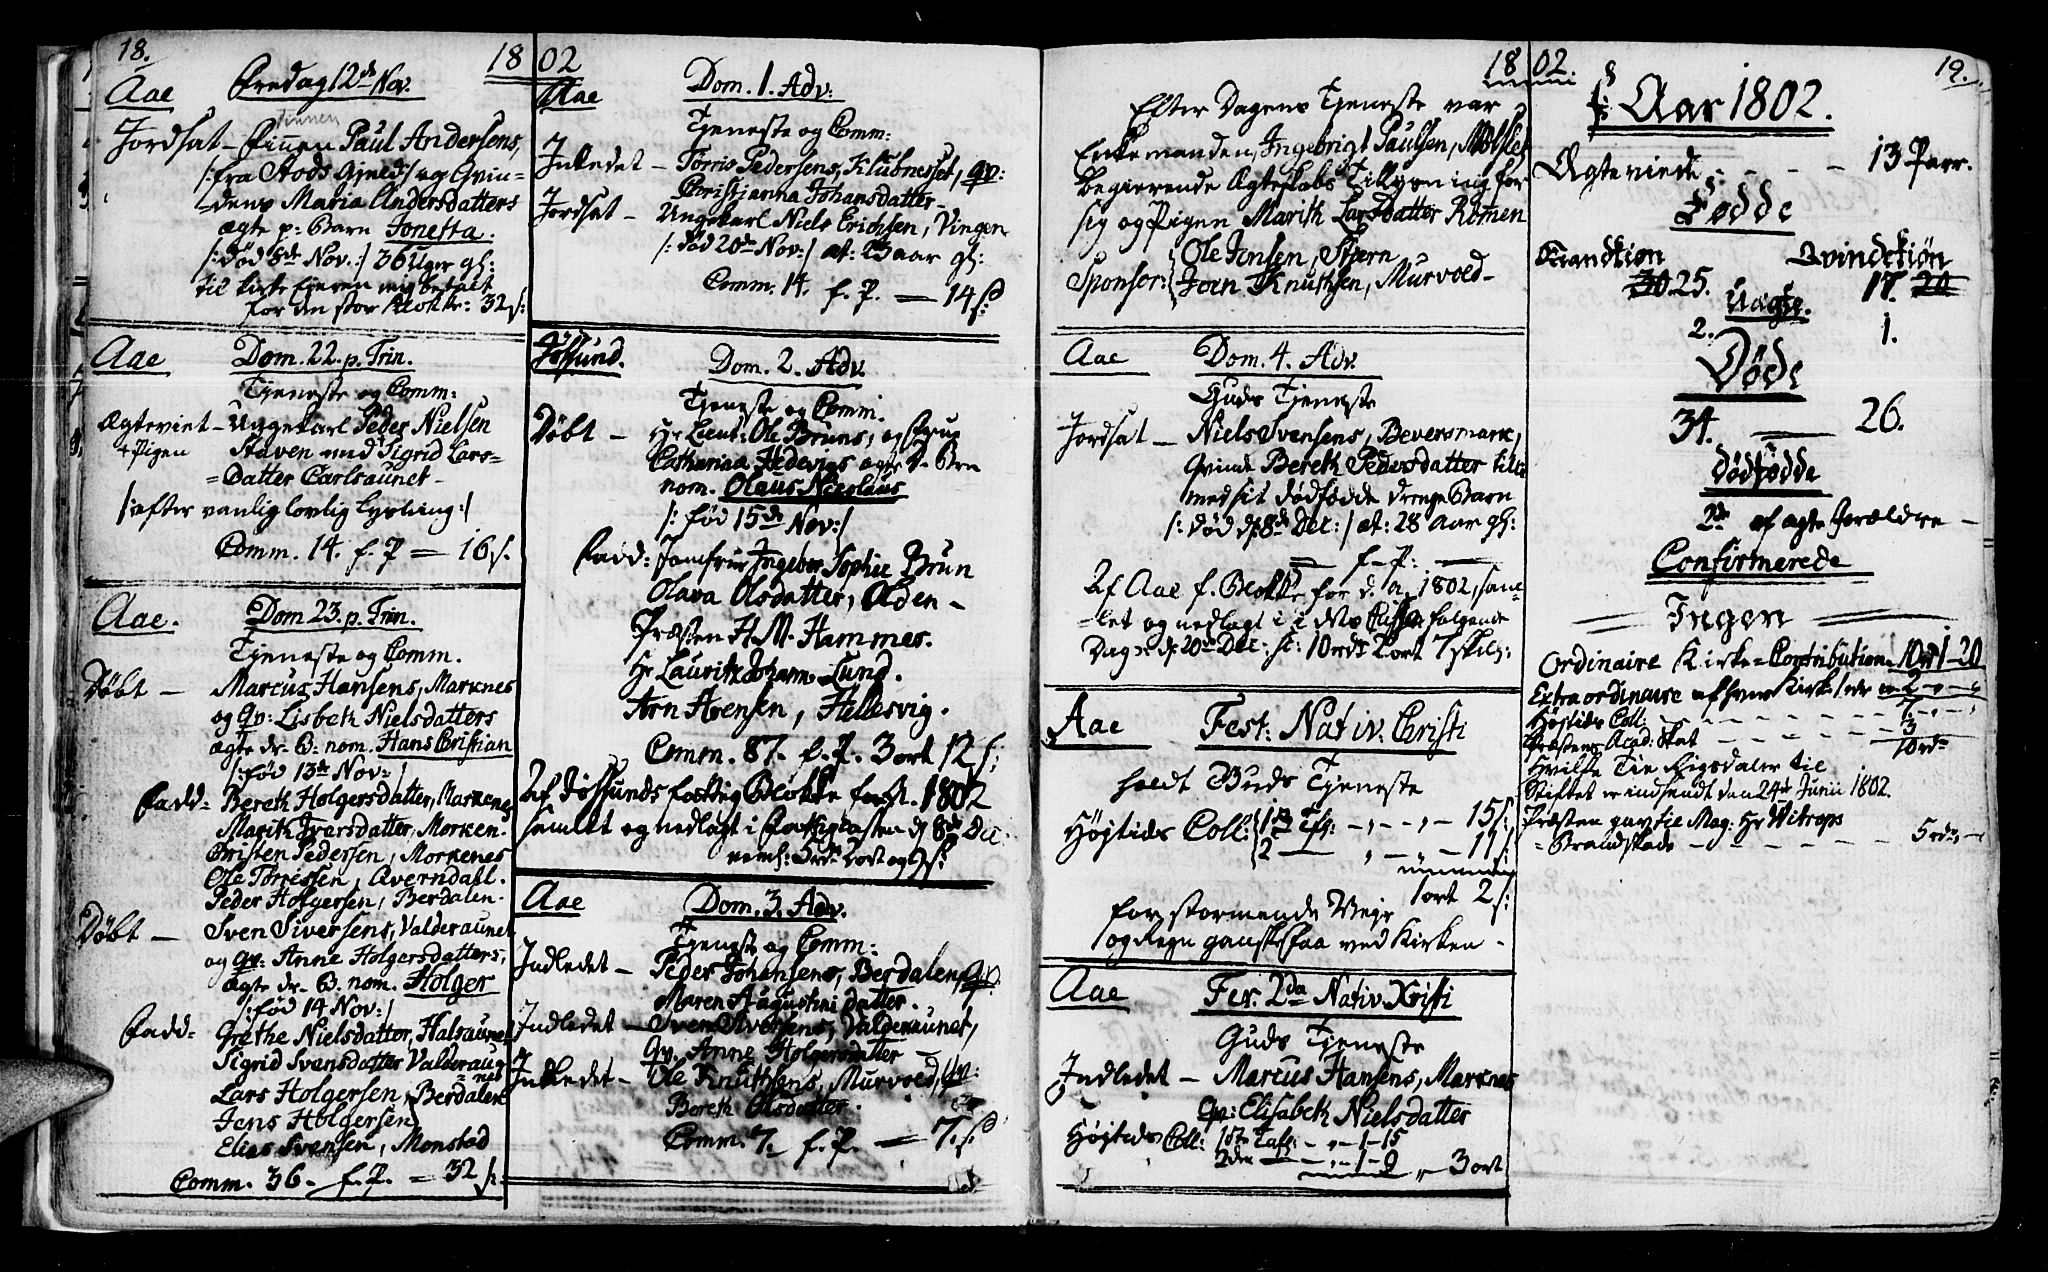 18.
18 02
Aae Fredag 12te Nov.
Finnen
Jordsat – Finnen Paul Andersens,
/: fra Stods Gjeld :/ og Qvin=
=dens Maria Andersdatters
ægte p: Barn Jonetta.
/: død 8de Nov. :/ 36 Uger gl:
til Kirke Eieren betalt
for den stor Klokke: 32 s:
Aae Dom. 22. p. Trin.
Tjeneste og Comm:
Ægteviet – Ungekarl Peder Nielsen
+ Pigen Staven med Sigrid Lars=
=Datter Carlsaunet –
/: efter vanlig lovlig Lysning :/
Comm. 14. f. P = 16 s.
Aae. Dom 23. p. Trin.
Tjeneste og Comm.
Døbt – Marcus Hansens, Marknes
og Qv: Lisbeth Nielsdatters
ægte dr. B: nom. Hans Christian
/: fød 13de Nov: /
Fadd: Bereth Holgersdatter, Marknes
Marith Ivarsdatter, Morken.
Christen Pedersen, Morkenes
Ole Torrissen, Averndahl.
Peder Holgersen, Berdalen.
Døbt – Sven Siversens, Valderaunet
og Qv: Anne Holgersdatters,
ægte dr. B. nom. Holger
/: fød 14 Nov: /
Fadd: Grethe Nielsdatter, Halsaunet
Sigrid Svensdatter Valderau=
=net
Lars Holgersen, Berdalen
Jens Holgersen
Elias Svensen, Monstad
Comm. 36. f. P. = 32 s.
Aae Dom. 1. Adv:
Tjeneste og Comm:
Indledet – Torris Pedersens, Klubnesset, Qv:
Christjanna Johansdatter –
Jordsat – Ungekarl Niels Erichsen, Vingen
/: død 20de Nov: / æt: 23 aar gl:
Comm. 14. f. P. — 14 s:
Jøssund. Dom. 2. Adv.
Tjeneste og Comm.
Døbt – Hr Lieut: Ole Bruns, og Frue
Catharina Hedevigs ægte D. Brn
nom. Olaus Nicolaus
/: fød 15de Nov: /
Fadd: Jomfrue Ingebor Sophie Brun
Olava Olsdatter, Olden –
Præsten H. M. Hammer.
Hr Lauritz Johan Lund.
Arn Arensen, Hellesvig.
Comm. 87. f. P. 3 ort 12 s:
Af Jøssunds fattig Blokke for A. 1802
samlet og nedlagt i Fattigkasten d 8de Dec.
neml: 5 rdr 2 ort og 9 s:
Aae Dom. 3. Adv.
Tjeneste og Comm:
Indledet – Peder Johansens, Berdalen, Qv:
Maren Augustini datter.
Indledet – Sven Siversens, Valderaunet,
Qv. Anne Holgersdatter –
Indledet – Ole Knuthsens, Murvold, Qv:
Bereth Olsdatter.
Comm. 7. f. P. — 7. s
18 02.
19.
Efter Dagens Tjeneste var
Enkemanden, Ingebrigt Paulsen, Mølslet
begierende Ægteskabs Tillysning for
sig og Pigen Marith Larsdatter Rømen
Sponsor: Ole Jensen, Stjern
Joen Knuthsen, Murvold –
Aae Dom. 4. Adv.
Guds Tjeneste
Jordsat – Niels Svensens, Beversmark,
Qvinde Bereth Pedersdatter till:
med sit dødfødde drenge Barn
/: død d. 8de Dec: / æt: 28 Aar gl:
— f. P: —
Af Aae f. Blokke for d. A. 1802, sam=
=let og nedlagt i dito Cassa følgende
Dag d. 20de Dec: sc: 10 rdr 2 ort 7 skil:
Aae Fest: Nativ: Christi
holdt Guds Tjeneste
Højtids Coll: 1ste Tafl: – „ – „ – 15 s:
2 — „ – „ – 11 s:
1 ort 2 s:
for stormende Vejr
og Regn ganske faa ved Kirken –
Aae Fer. 2da Nativ. Xristi
Guds Tjeneste
Indledet – Marcus Hansens, Marknes
Qv: Elisabeth Nielsdatter
Højtids Coll: 1ste Tafl: – „ – 1 – 15
2den — – „ – 1 – 9 „ 3 ort
Aar 1802.
Ægteviede – – – – 13 Parr.
Fødde
Mandkiøn Qvindekiøn
30 25. 17. 20
Uægte.
2. 1.
Døde
34. — 26.
Dødfødde
2de af ægte Forældre –
Confirmerede
Ingen
Ordinaire Kirke=Contribution 10 rd 1 – 20
Extraordinaire
Højtids Coll: – – – – 7 – „ – „
Præstens Acad: Skat – – – – 3
10 rdr
Hvilke Tie Rigsdaler til
Stiftet er indsendt den 24de Junii 1802.
Præsten gav til Mag: Hr Witrops
=Brandskade – – – – – 5 rdr „ –